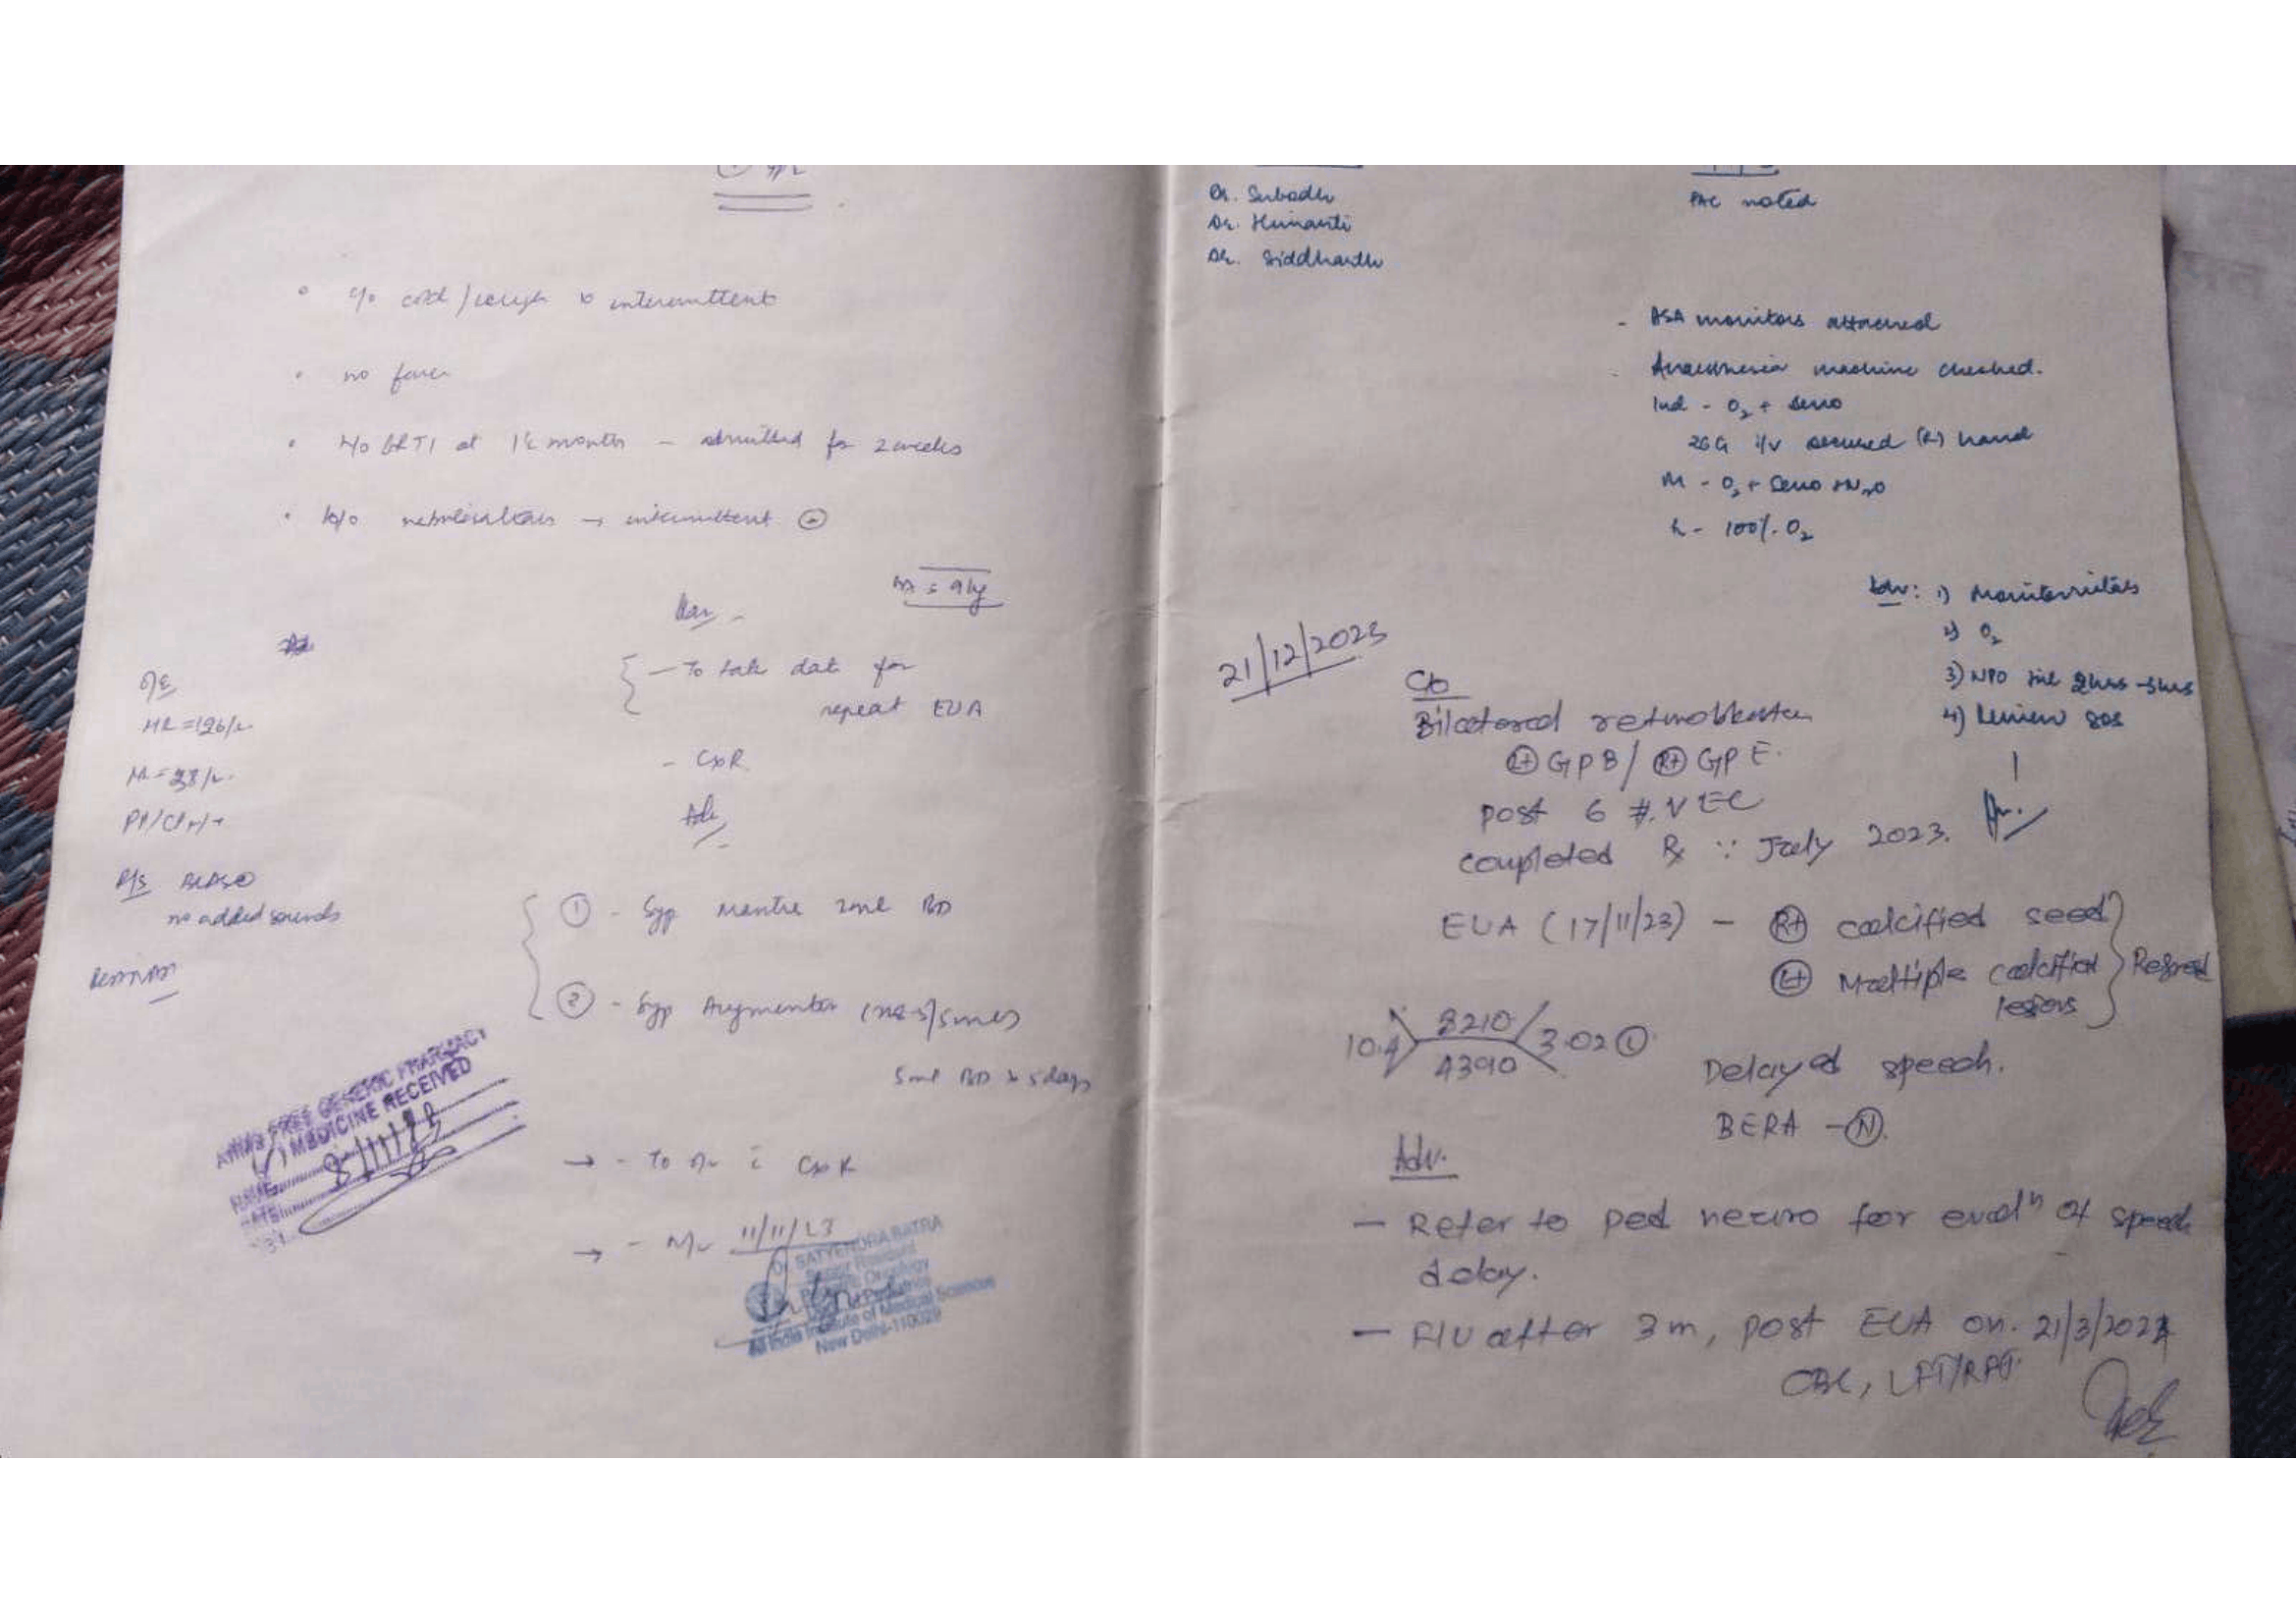 c/o cold / cough x intermittent
no fever
h/o LRTI at 1½ months - admitted for 2 weeks
h/o nebulisations → intermittent
= 9 kg
Plan -
- To take date for
repeat EUA
- CXR
Adv
O/E
HR = 126/
PP/CP
R/S
no added sounds
① - Syp 2ml BD
② - Syp Augmentin /5ml)
5ml BD x 5 days
→ - To r/v c̄ CXR
→ - R/v 11/11/23
AIIMS FREE GENERIC PHARMACY
MEDICINE RECEIVED
8/11/23
Dr. SATYENDRA BATRA
Senior Resident
Oncology
Pediatrics
All India Institute of Medical Sciences
New Delhi-110029
Dr. Subodh
Dr.
Dr. Siddharth
PAC noted
- ASA monitors attached
- Anaesthesia machine checked.
Ind - O₂ + Sevo
26G i/v secured (R) hand
M - O₂ + Sevo + N₂O
R - 100% O₂
Adv: 1) Monitor vitals
2) O₂
3) NPO
4) Review SOS
21/12/2023
C/o
Bilateral retinoblastoma
Lt GPB / Rt GPE.
post 6 #. VEC
completed Rx ∵ July 2023.
EUA (17/11/23) - Rt calcified seed
Lt Multiple calcified
lesions
10.4 8210 3.02 L
4390
Delayed speech.
BERA - N.
Adv.
- Refer to ped neuro for evalⁿ of speech
delay.
- F/U after 3m, post EUA on. 21/3/2024
CBC, LFT/RFT.